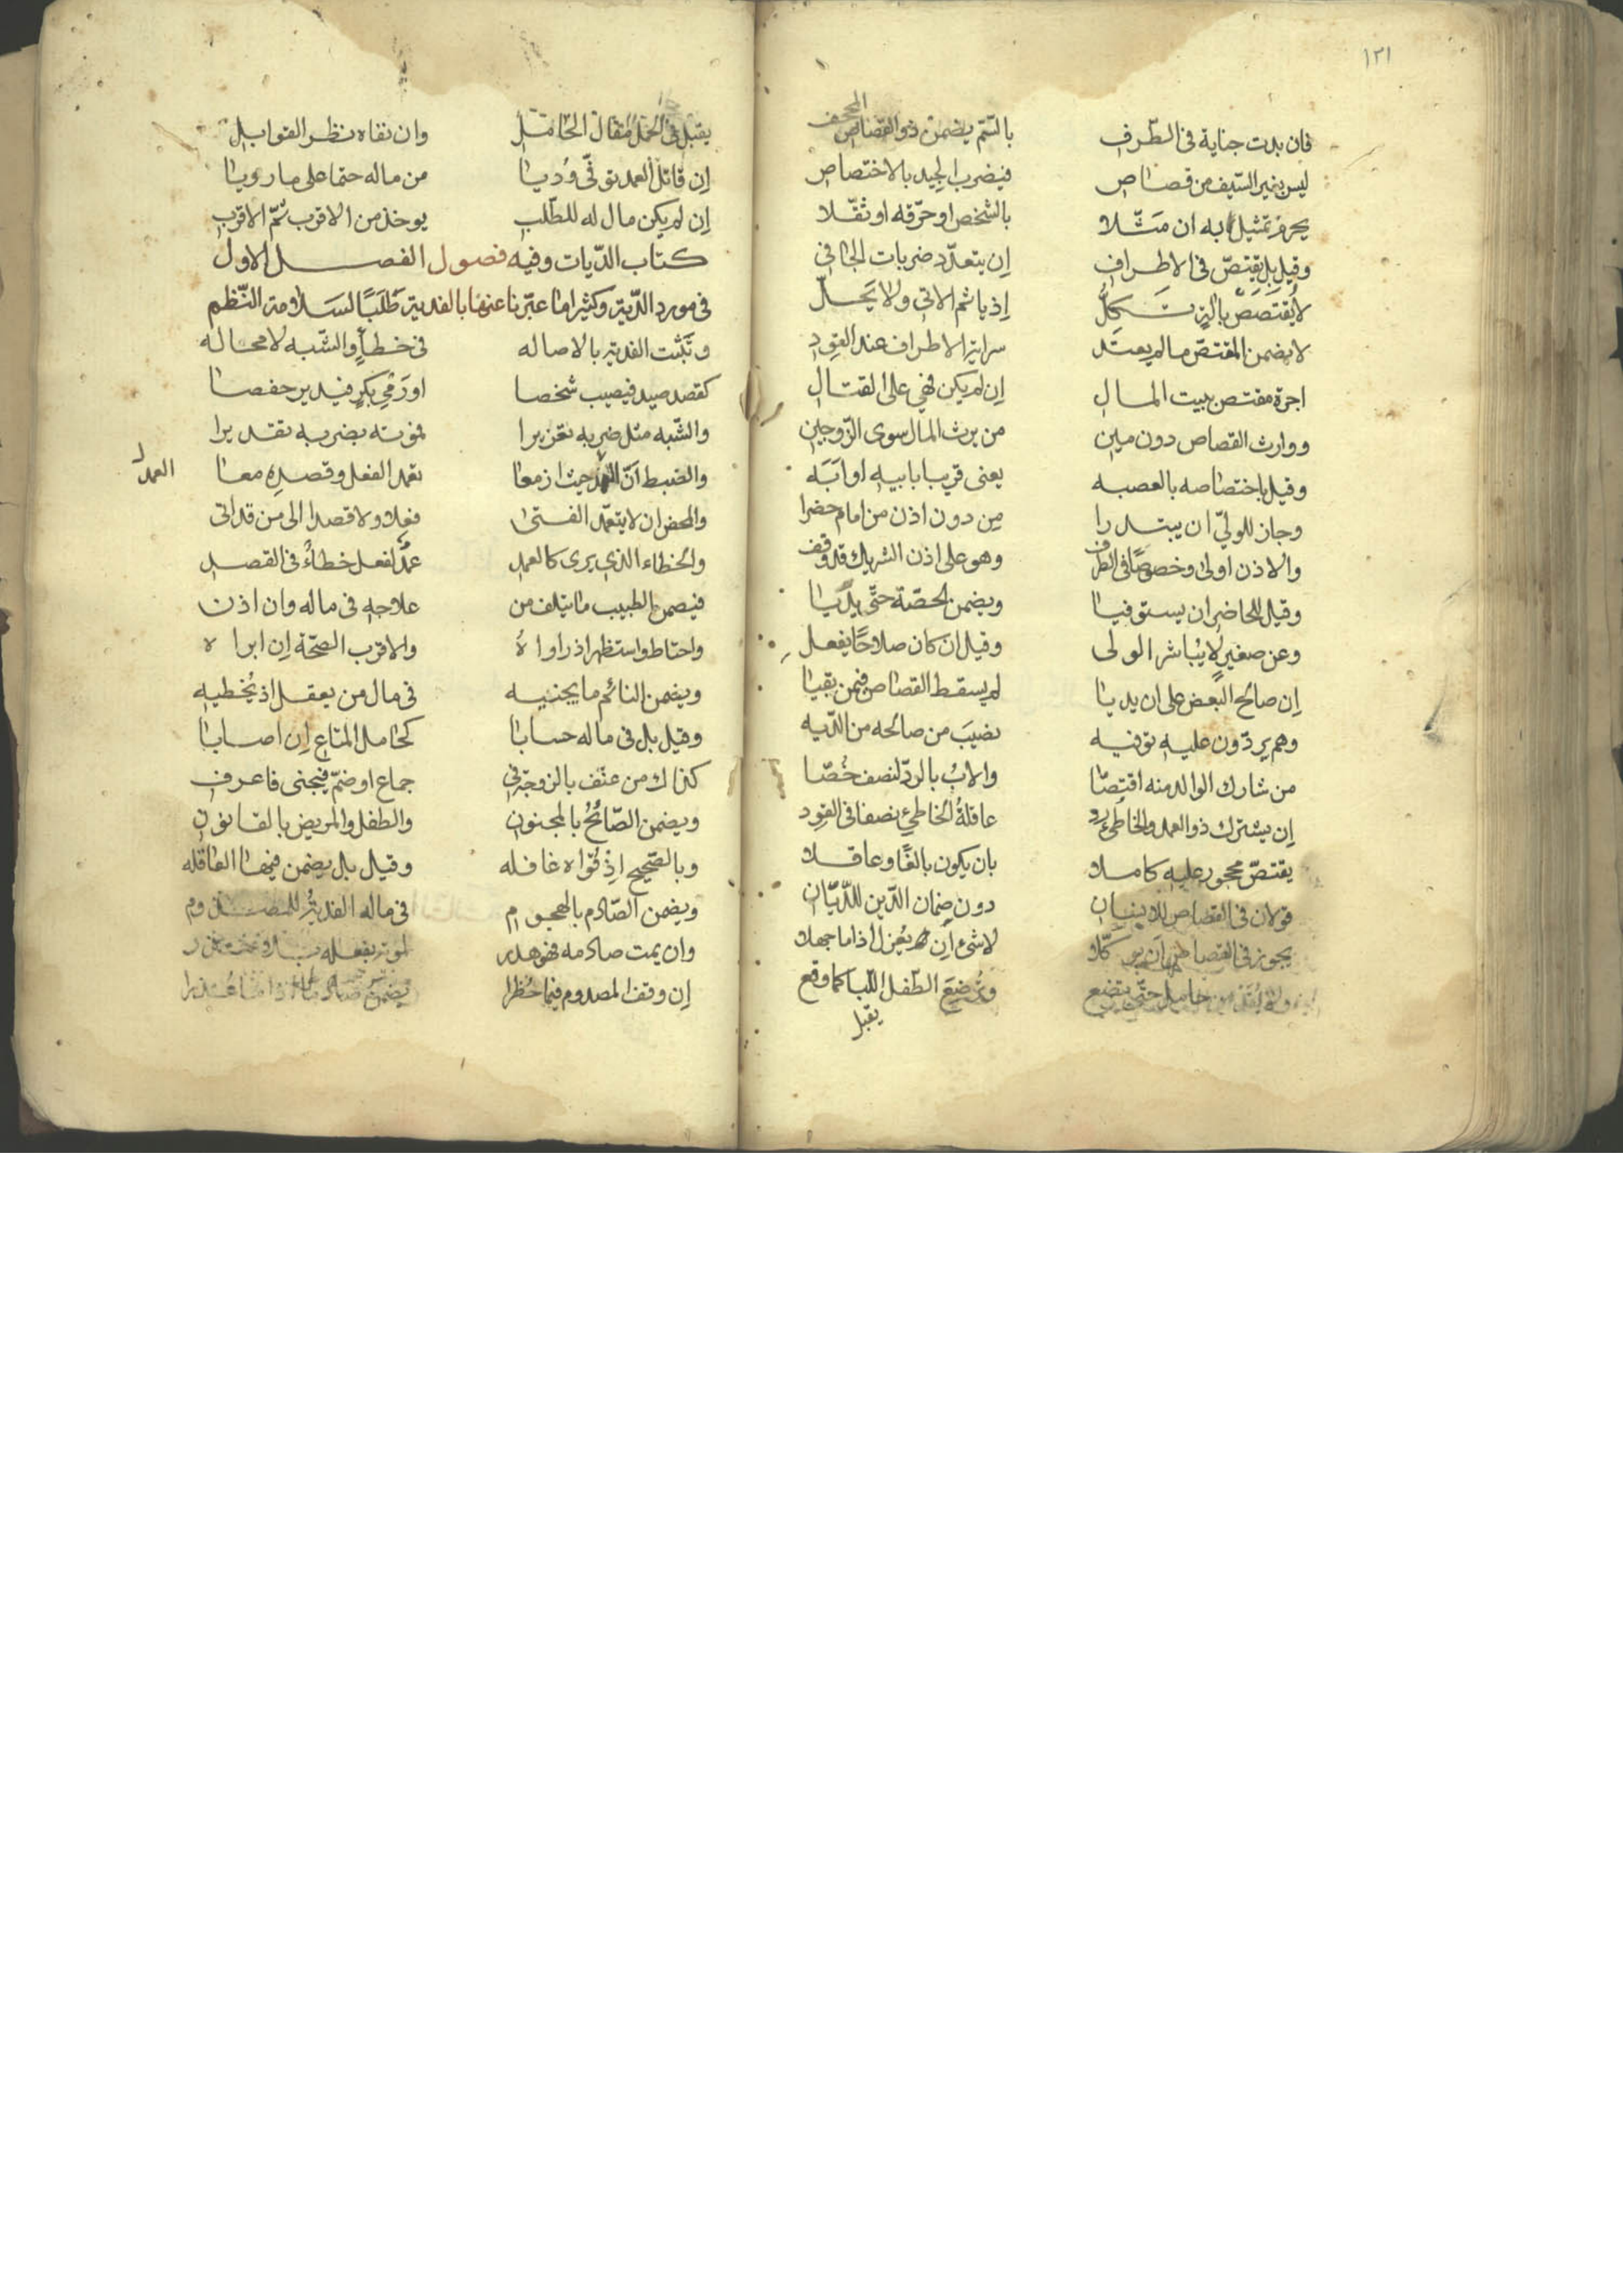 ١٢١
فان بدت جناية فى الطّرف بالسّم يضمن ذو القصاص المجحف
ليس بغير السّيف من قصاص فيضرب الجيد بالاختصاص
يحرم تمثيل به ان مثّلا بالشخص او حرّقه او ثقّلا
وقيل بل يقتصّ فى الاطراف إن يتعدّد ضربات الجافى
لا يقتصص بالة تكلّ إذ ياثم الاتى ولا يحلّ
لا يضمن المقتصّ ما لم يعتد سراية الاطراف عند القود
اجرة مقتص ببيت المال إن لم يكن فهى على القتال
ووارث القصاص دون مين من يرث المال سوى الزّوجين
وقيل باختصاصه بالعصبه يعنى قريبا بابيه او ابَه
وجاز للولىّ ان يبتدرا من دون اذن من امام حضرا
والاذن اولى وخصوصًا فى الطرف وهو على اذن الشريك قد وقف
وقيل للحاضر ان يستوفيا ويضمن الحصّة حتّى يديا
وعن صغير لا يباشر الولى وقيل ان كان صلاحًا يفعل
إن صالح البعض على ان يديا لم يسقط القصاص فيمن بقيا
وهم يردّون عليه توفيه نصيب من صالحه من الدّيه
من شارك الوالد منه اقتصّا والاب بالردّ لنصف خُصّا
إن يشترك ذو العمد والخاطئ رد عاقلة الخاطئ نصفا فى القود
يقتصّ محجور عليه كاملا بان يكون بالغًا وعاقلا
قولان فى القصاص للدينان دون ضمان الدّين للدّيّان
يجوز فى القصاص ان يوكّلا لا شئ إن يعزل اذا ما جهلا
من حامل حتّى تضع وترضع الطّفل اللّبا كما وقع
يقبل
يقبل فى الحمل مقال الحامل وان نفاه نظر القوابل
إن قاتل العمد توفّى وُديا من ماله حتما على ما رويا
إن لم يكن مال له للطّلب يوخذ من الاقرب ثمّ الاقرب
كتاب الدّيات وفيه فصول الفصل الاول
فى مورد الدّية وكثيرا ما عبّرنا عنها بالفدية طلبًا لسلامة النّظم
وتثبت الفدية بالاصاله فى خطأٍ والشّبه لا محاله
كقصد صيد فيصيب شخصا او رمى بكر فيدير حفصا
والشّبه مثل ضربه تعزيرا لموته بضربه تقديرا
والضبط انّ العمد حيث ازمعا تعمد الفعل وقصده معا
العمد
والمحض ان لا يتعمّد الفتى فعلا ولا قصدا الى من قد اتى
والخطاء الذى يرى كالعمد عمد لفعل خطأً فى القصد
فيضمن الطبيب ما يتلف من علاجه فى ماله وان اذن
واحتاطوا استظهر اذ راواه والاقرب الصحّة إن ابراه
ويضمن النائم ما يجنيه فى مال من يعقل اذ يُخطيه
وقيل بل فى ماله حسابا كحامل المتاع إن اصابا
كذاك من عنّف بالزوجة فى جماع او ضمّ فيجنى فاعرف
ويضمن الصّائح بالمجنون والطفل والمريض بالقانون
وبالصّحيح إذ تُواه غافله وقيل بل يضمن فيها العاقله
ويضمن الصّادم بالهجوم فى ماله الفدية للمصدوم
وان يمت صادمه فهو هدر لموته بفعله
إن وقف المصدوم فيما حُظرا يضمن